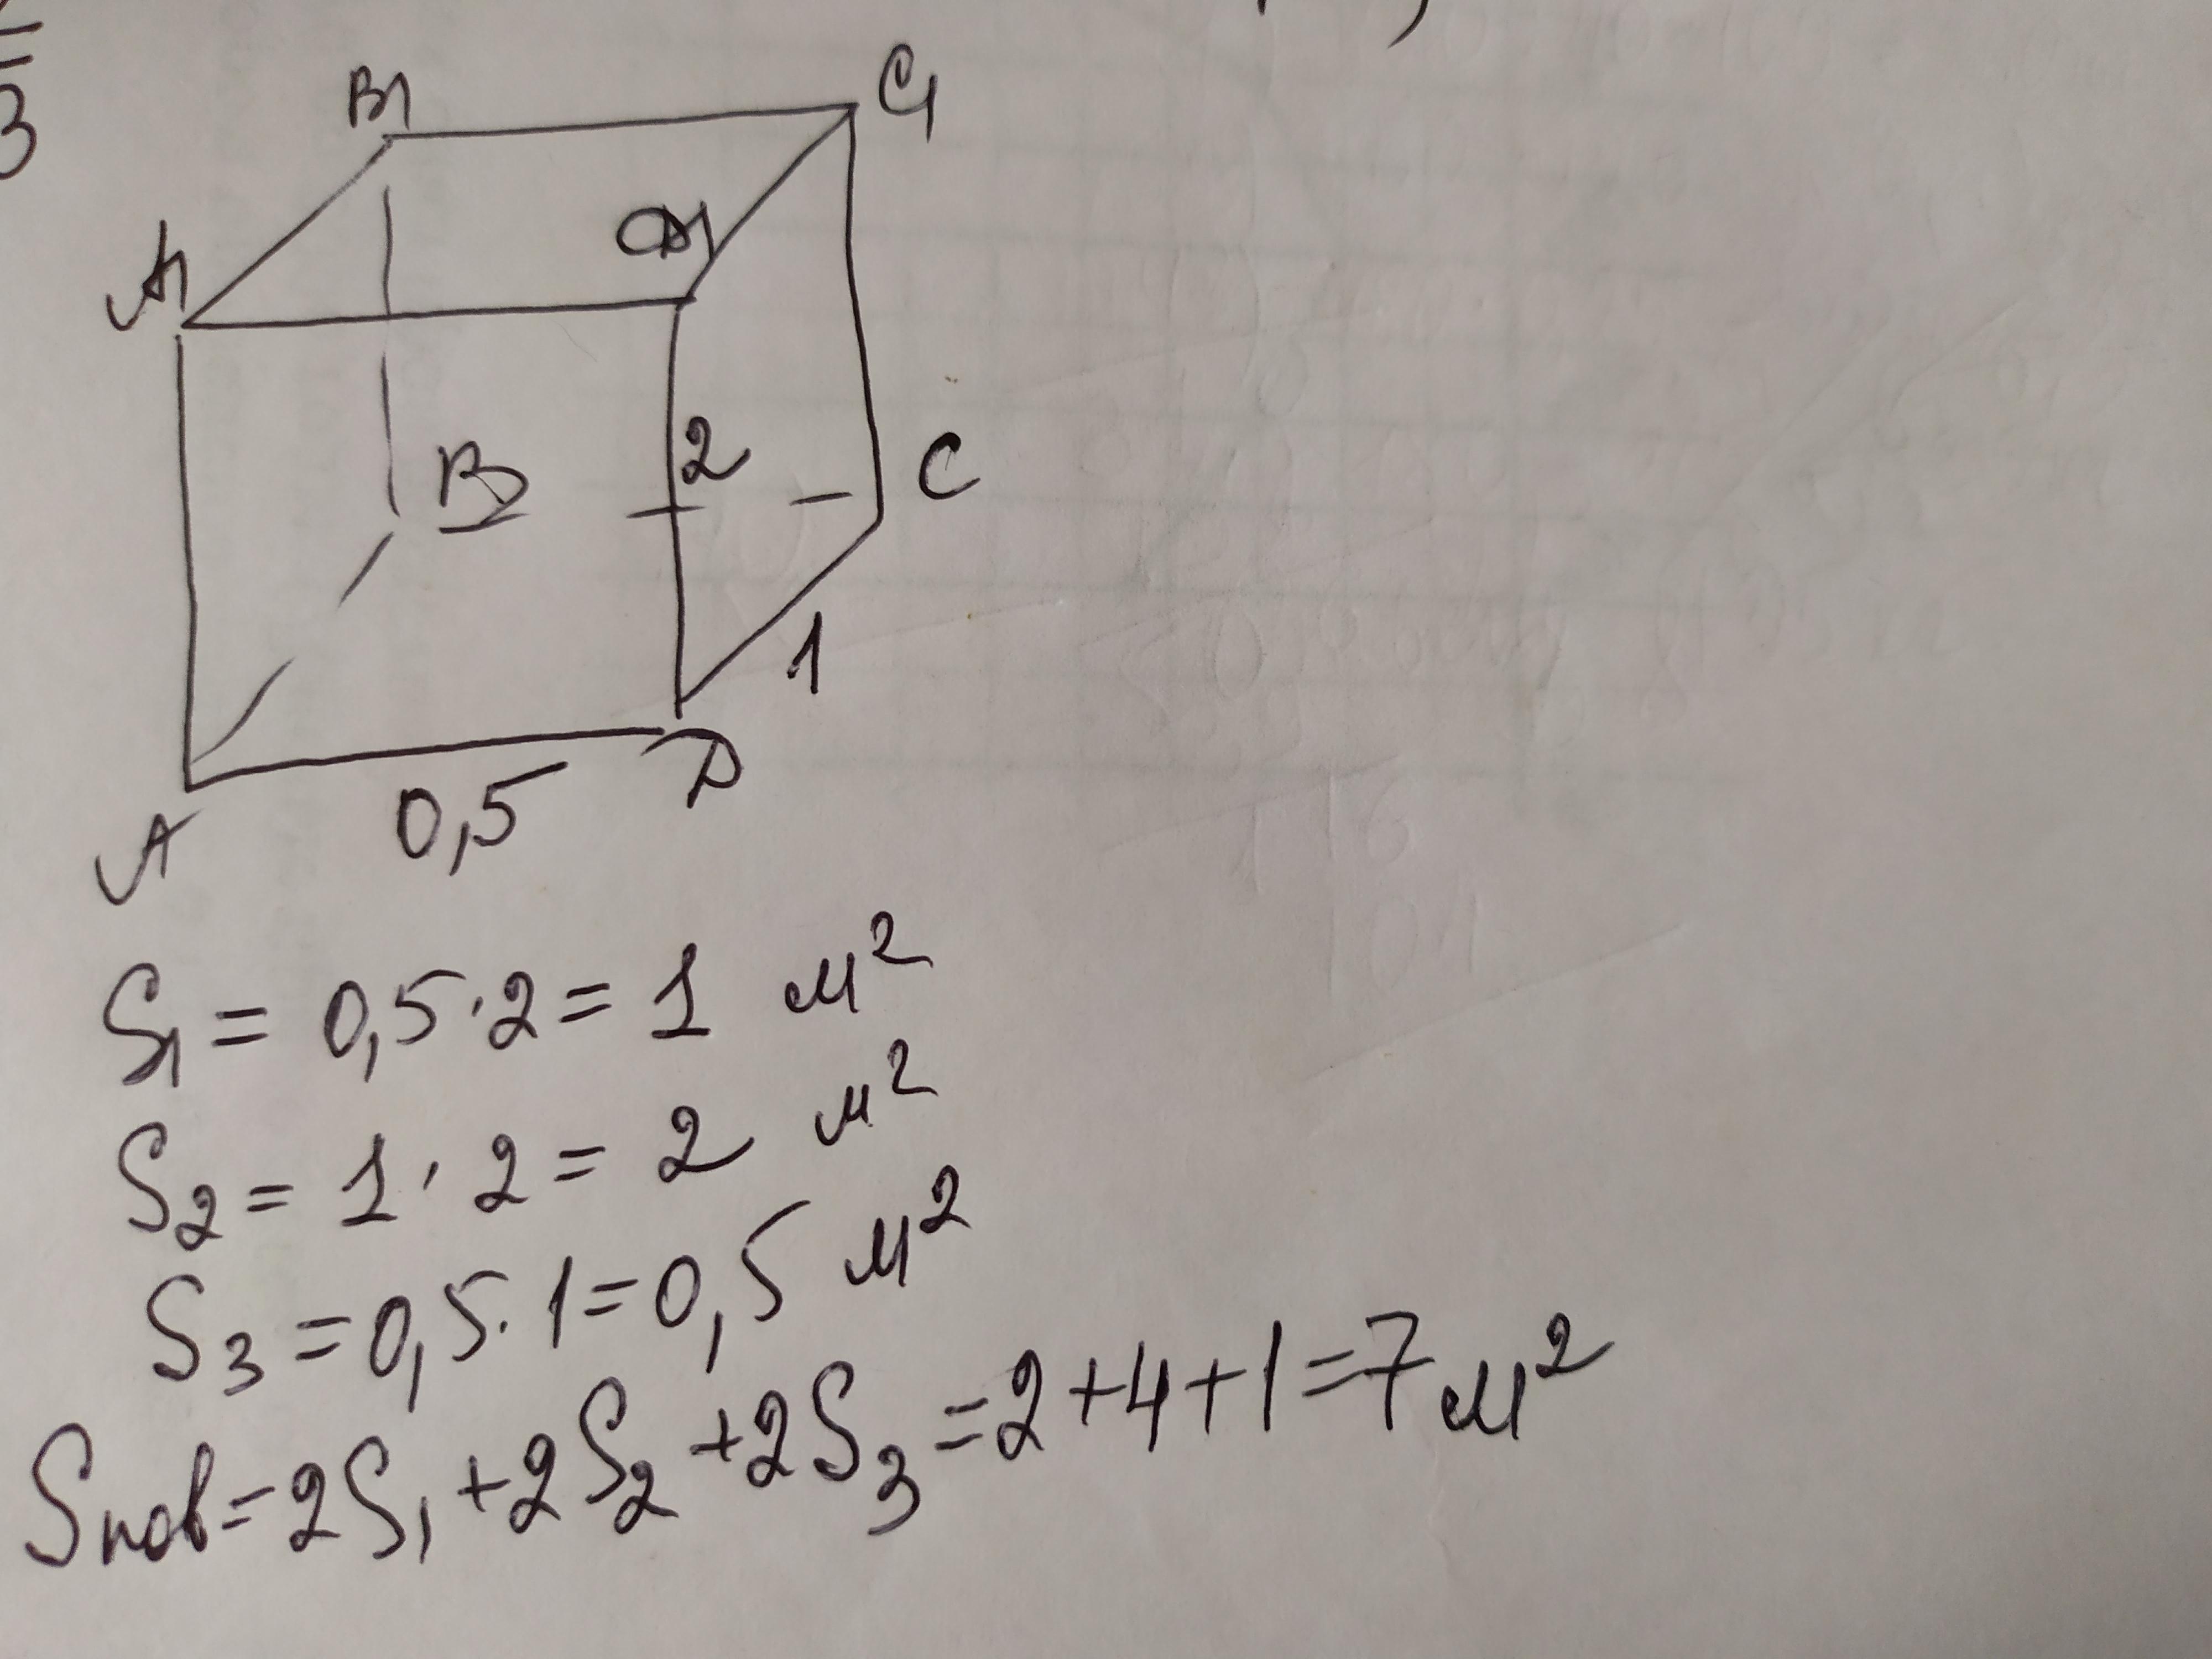 3
B1
C1
A1
D1
2
B
C
1
A
D
0,5
S1 = 0,5·2 = 1 м²
S2 = 1·2 = 2 м²
S3 = 0,5·1 = 0,5 м²
Sпов = 2S1 + 2S2 + 2S3 = 2 + 4 + 1 = 7 м²